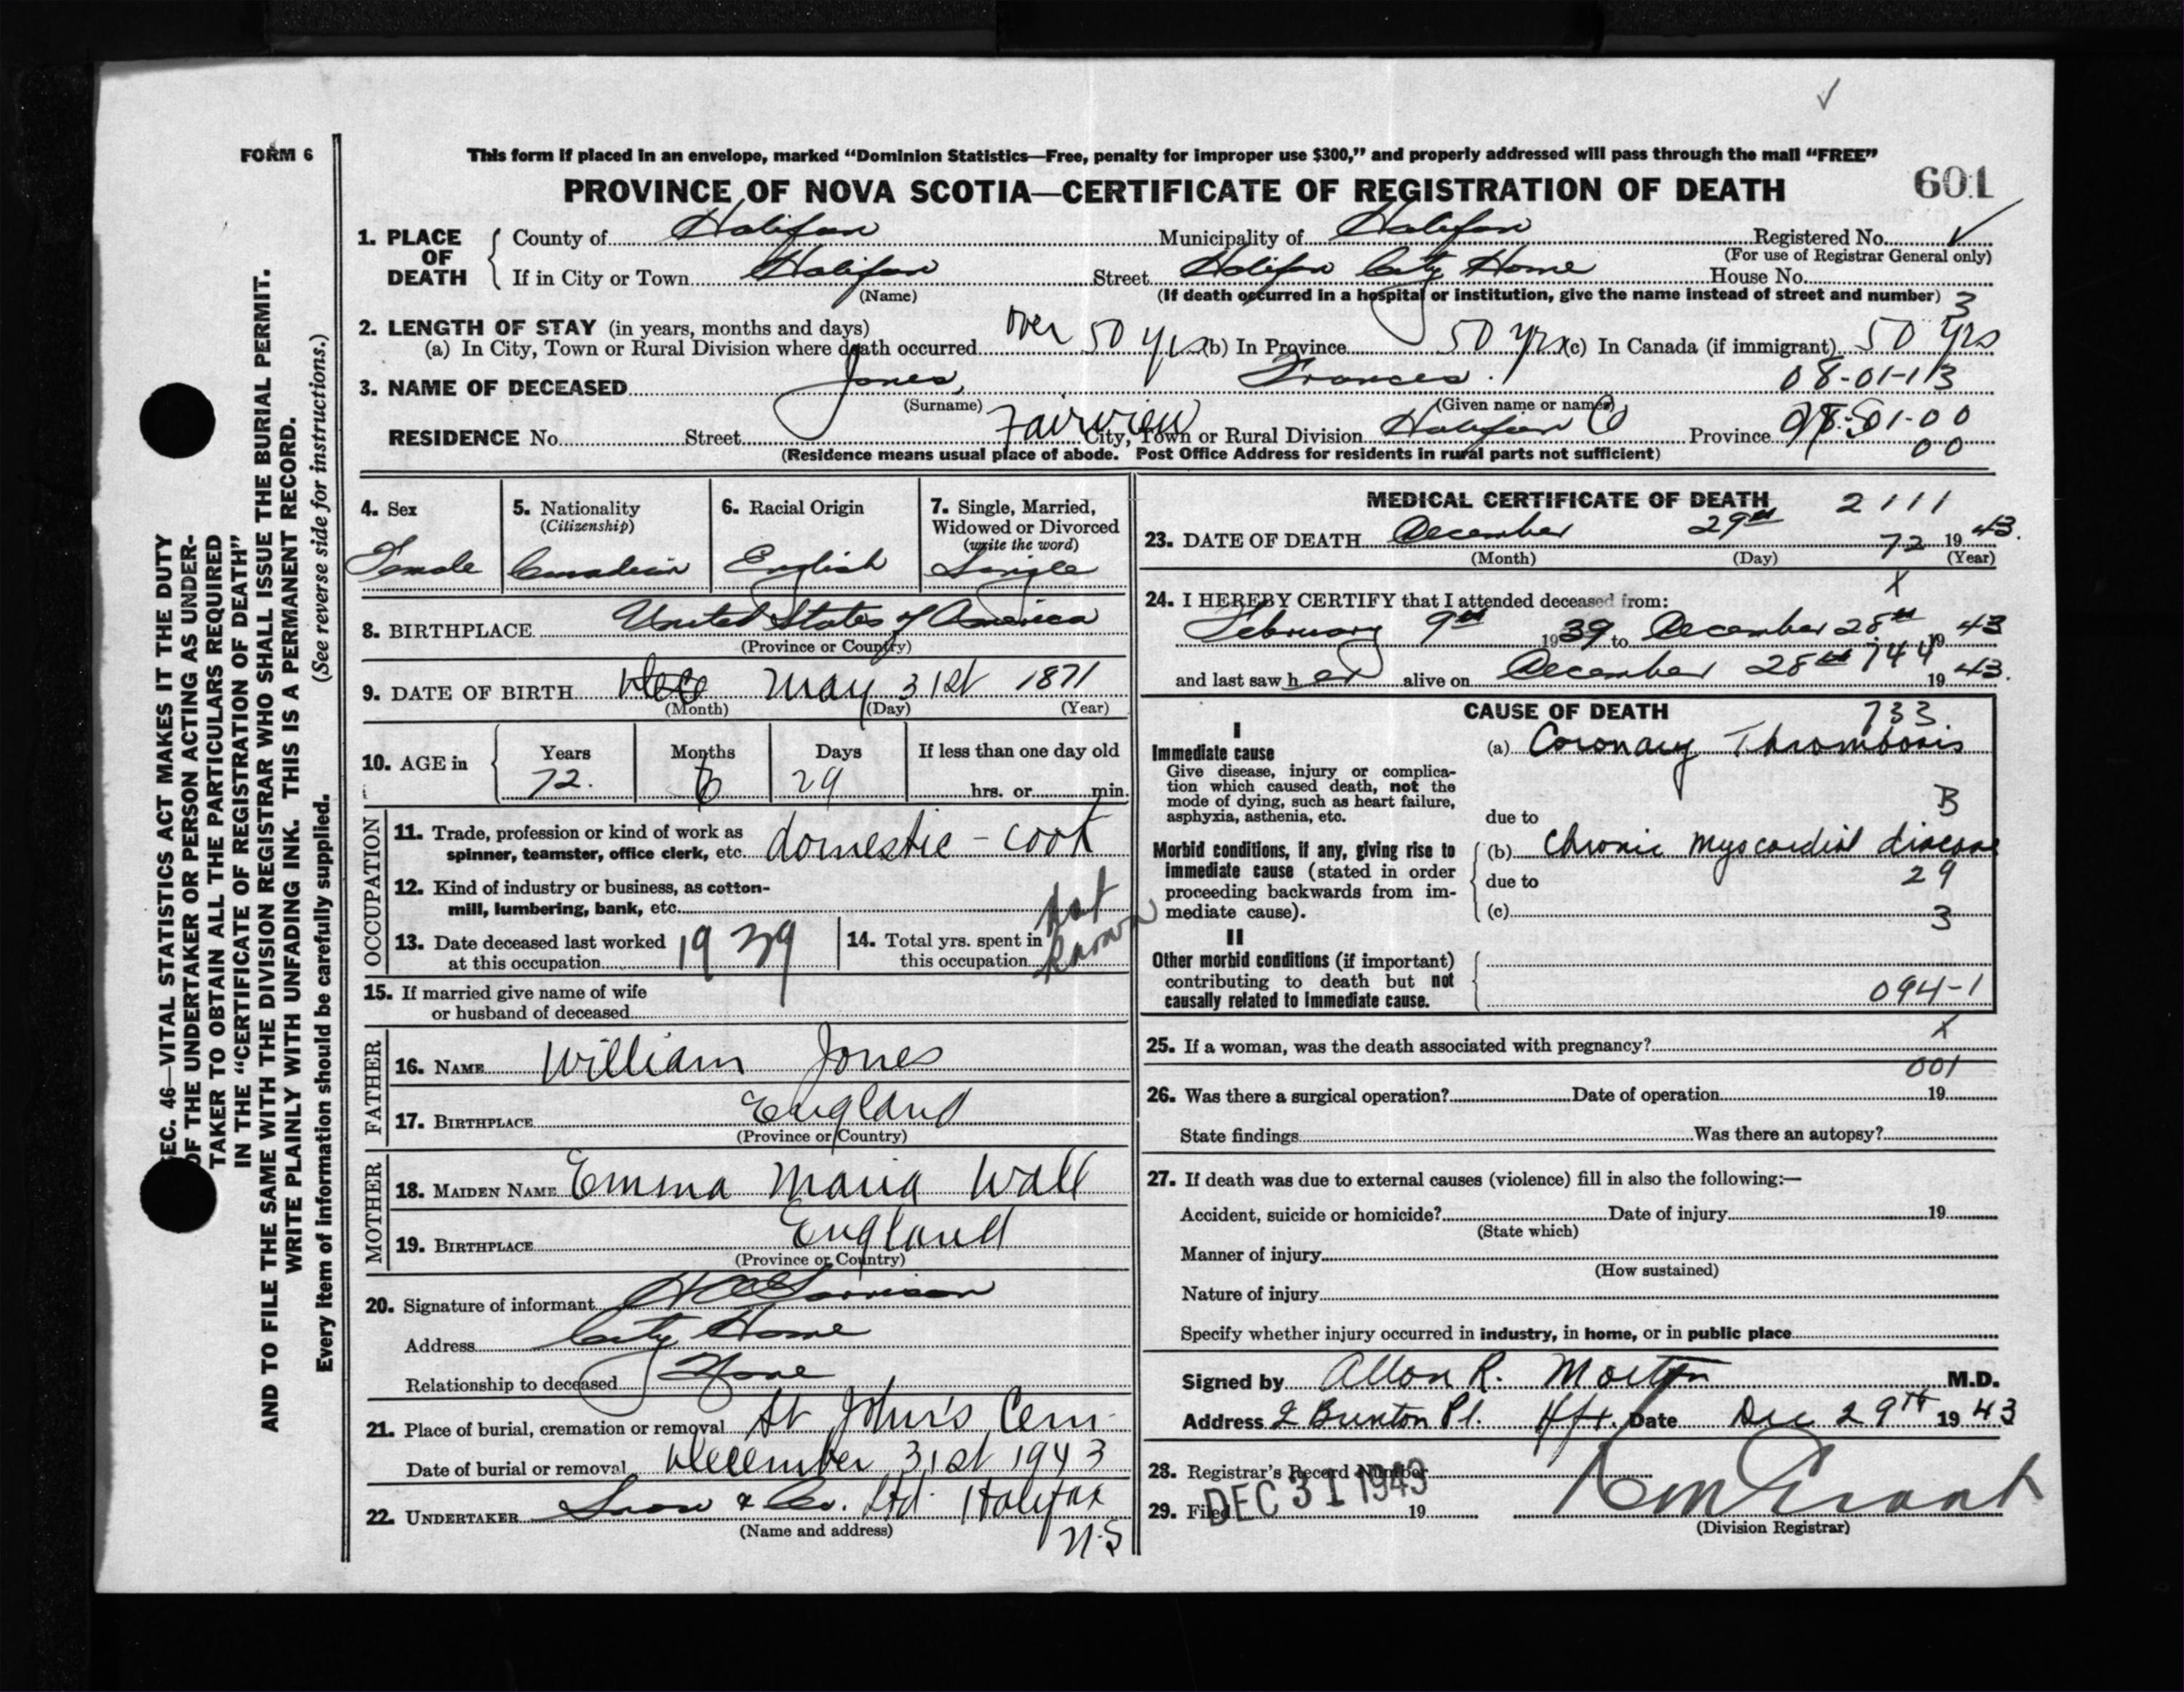 ✓
FORM 6
This form if placed in an envelope, marked "Dominion Statistics—Free, penalty for improper use $300," and properly addressed will pass through the mail "FREE"
PROVINCE OF NOVA SCOTIA—CERTIFICATE OF REGISTRATION OF DEATH 601
1. PLACE OF DEATH { County of Halifax Municipality of Halifax Registered No. ✓
(For use of Registrar General only)
If in City or Town Halifax Street Halifax City Home House No.
(Name) (If death occurred in a hospital or institution, give the name instead of street and number) 3
2. LENGTH OF STAY (in years, months and days)
(a) In City, Town or Rural Division where death occurred over 50 yrs (b) In Province 50 yrs (c) In Canada (if immigrant) 50 yrs
3. NAME OF DECEASED Jones, Frances. 08-01-13
(Surname) (Given name or names)
RESIDENCE No. Street Fairview City, Town or Rural Division Halifax Co Province 01-00
00
(Residence means usual place of abode. Post Office Address for residents in rural parts not sufficient)
4. Sex 5. Nationality (Citizenship) 6. Racial Origin 7. Single, Married, Widowed or Divorced (write the word)
Female Canadian English Single
8. BIRTHPLACE United States of America
(Province or Country)
9. DATE OF BIRTH Dec May 31st 1871
(Month) (Day) (Year)
10. AGE in { Years Months Days If less than one day old
72. 6 29 hrs. or min.
OCCUPATION
11. Trade, profession or kind of work as
spinner, teamster, office clerk, etc. domestic - cook
12. Kind of industry or business, as cotton-
mill, lumbering, bank, etc.
13. Date deceased last worked at this occupation 1939 14. Total yrs. spent in this occupation not known
15. If married give name of wife
or husband of deceased
FATHER
16. NAME William Jones
17. BIRTHPLACE England
(Province or Country)
MOTHER
18. MAIDEN NAME Emma Maria Wall
19. BIRTHPLACE England
(Province or Country)
20. Signature of informant
Address City Home
Relationship to deceased None
21. Place of burial, cremation or removal St John's Cem.
Date of burial or removal December 31st 1943
22. UNDERTAKER Snow & Co. Ltd. Halifax
(Name and address) N.S
MEDICAL CERTIFICATE OF DEATH 2111
23. DATE OF DEATH December 29th 72 19 43.
(Month) (Day) (Year)
X
24. I HEREBY CERTIFY that I attended deceased from:
February 9th 1939 to December 28th 19 43
744
and last saw her alive on December 28th 19 43.
CAUSE OF DEATH 733.
I
Immediate cause (a) Coronary Thrombosis
Give disease, injury or complica-
tion which caused death, not the
mode of dying, such as heart failure, B
asphyxia, asthenia, etc. due to
Morbid conditions, if any, giving rise to (b) Chronic myocardial disease
immediate cause (stated in order due to 29
proceeding backwards from im-
mediate cause). (c) 3
II
Other morbid conditions (if important)
contributing to death but not
causally related to immediate cause. 094-1
X
25. If a woman, was the death associated with pregnancy?
001
26. Was there a surgical operation? Date of operation 19
State findings Was there an autopsy?
27. If death was due to external causes (violence) fill in also the following:—
Accident, suicide or homicide? Date of injury 19
(State which)
Manner of injury
(How sustained)
Nature of injury
Specify whether injury occurred in industry, in home, or in public place
Signed by Allan R. Morton M.D.
Address 2 Brunton Pl. Hfx. Date Dec 29TH 19 43
28. Registrar's Record Number
29. Filed DEC 31 1943 19
(Division Registrar)
SEC. 46—VITAL STATISTICS ACT MAKES IT THE DUTY
OF THE UNDERTAKER OR PERSON ACTING AS UNDER-
TAKER TO OBTAIN ALL THE PARTICULARS REQUIRED
IN THE "CERTIFICATE OF REGISTRATION OF DEATH"
AND TO FILE THE SAME WITH THE DIVISION REGISTRAR WHO SHALL ISSUE THE BURIAL PERMIT.
WRITE PLAINLY WITH UNFADING INK. THIS IS A PERMANENT RECORD.
Every item of information should be carefully supplied. (See reverse side for instructions.)